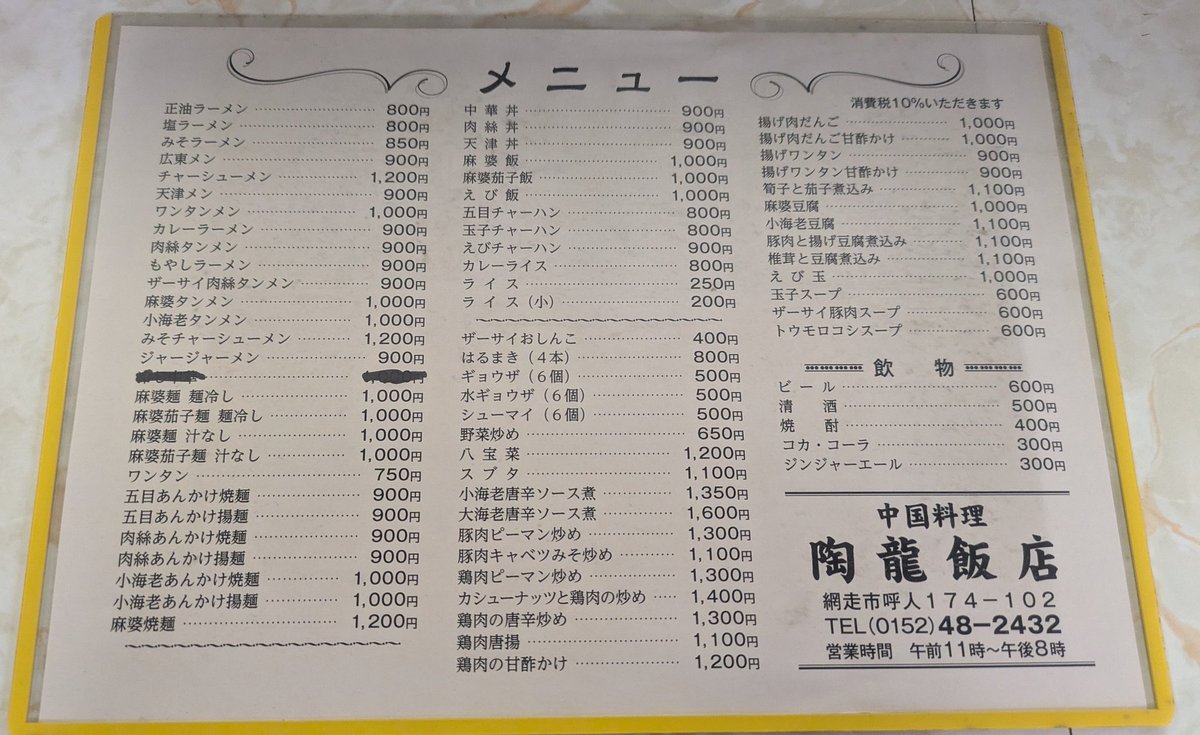 メニュー
正油ラーメン 800円
塩ラーメン 800円
みそラーメン 850円
広東メン 900円
チャーシューメン 1,200円
天津メン 900円
ワンタンメン 1,000円
カレーラーメン 900円
肉絲タンメン 900円
もやしラーメン 900円
ザーサイ肉絲タンメン 900円
麻婆タンメン 1,000円
小海老タンメン 1,000円
みそチャーシューメン 1,200円
ジャージャーメン 900円
麻婆麺 麺冷し 1,000円
麻婆茄子麺 麺冷し 1,000円
麻婆麺 汁なし 1,000円
麻婆茄子麺 汁なし 1,000円
ワンタン 750円
五目あんかけ焼麺 900円
五目あんかけ揚麺 900円
肉絲あんかけ焼麺 900円
肉絲あんかけ揚麺 900円
小海老あんかけ焼麺 1,000円
小海老あんかけ揚麺 1,000円
麻婆焼麺 1,200円
中華丼 900円
肉絲丼 900円
天津丼 900円
麻婆飯 1,000円
麻婆茄子飯 1,000円
えび飯 1,000円
五目チャーハン 800円
玉子チャーハン 800円
えびチャーハン 900円
カレーライス 800円
ライス 250円
ライス(小) 200円
ザーサイおしんこ 400円
はるまき(4本) 800円
ギョウザ(6個) 500円
水ギョウザ(6個) 500円
シューマイ(6個) 500円
野菜炒め 650円
八宝菜 1,200円
スブタ 1,100円
小海老唐辛ソース煮 1,350円
大海老唐辛ソース煮 1,600円
豚肉ピーマン炒め 1,300円
豚肉キャベツみそ炒め 1,100円
鶏肉ピーマン炒め 1,300円
カシューナッツと鶏肉の炒め 1,400円
鶏肉の唐辛炒め 1,300円
鶏肉唐揚 1,100円
鶏肉の甘酢かけ 1,200円
消費税10%いただきます
揚げ肉だんご 1,000円
揚げ肉だんご甘酢かけ 1,000円
揚げワンタン 900円
揚げワンタン甘酢かけ 900円
筍子と茄子煮込み 1,100円
麻婆豆腐 1,000円
小海老豆腐 1,100円
豚肉と揚げ豆腐煮込み 1,100円
椎茸と豆腐煮込み 1,100円
えび玉 1,000円
玉子スープ 600円
ザーサイ豚肉スープ 600円
トウモロコシスープ 600円
飲物
ビール 600円
清酒 500円
焼酎 400円
コカ・コーラ 300円
ジンジャーエール 300円
中国料理
陶龍飯店
網走市呼人174-102
TEL(0152)48-2432
営業時間 午前11時~午後8時